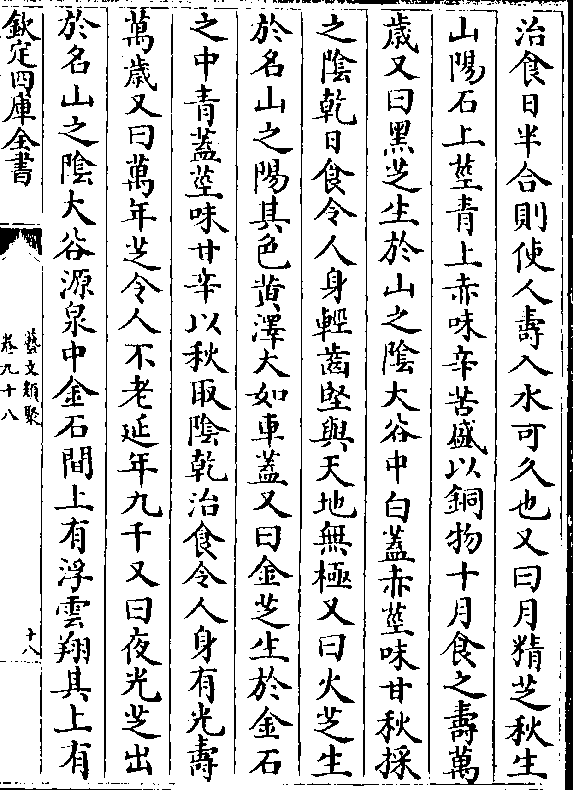 治食日半合則使人壽入水可久也又曰月精芝秋生
山陽石上莖青上赤味辛苦盛以銅物十月食之壽萬
歲又曰黑芝生於山之隂大谷中白蓋赤莖味甘秋採
之隂乾日食令人身輕齒堅與天地無極又曰火芝生
於名山之陽其色黄澤大如車蓋又曰金芝生於金石
之中青蓋莖味甘辛以秋取隂乾治食令人身有光壽
萬歲又曰萬年芝令人不老延年九千又曰夜光芝出
於名山之隂大谷源泉中金石間上有浮雲翔其上有
欽定四庫全書
藝文類聚
卷九十八
十八